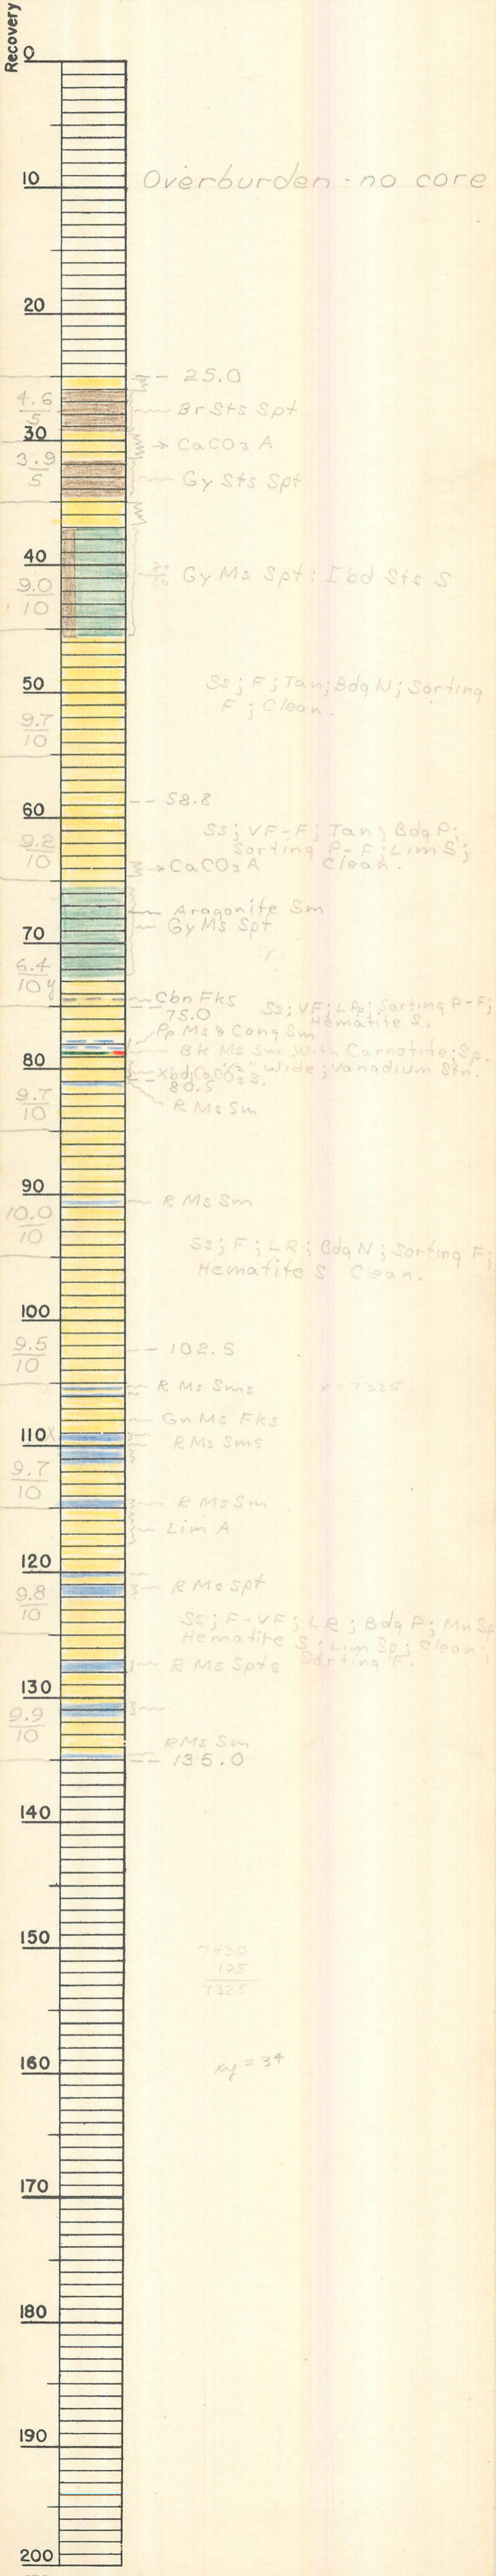 Recovery
0
10
Overburden - no core
20
25.0
4.6
5
Br Sts Spt
30
CaCO3 A
3.9
5
Gy Sts Spt
40
Gy Ms Spt: Ibd Sts S
9.0
10
50
Ss; F; Tan; Bdg N; Sorting
F; Clean.
9.7
10
58.8
60
Ss; VF-F; Tan; Bdg P;
Sorting P-F; Lim S;
Clean.
9.2
10
CaCO3 A
Aragonite Sm
Gy Ms Spt
70
6.4
10
y
Cbn Fks
75.0
Ss; VF; LPp; Sorting P-F;
Hematite S.
Pp Ms & Cong Sm
Bk Ms Sm, With Carnotite; Sp.
Wide; Vanadium Stn.
80
Xbd; CaCO3 S.
80.5
R Ms Sm
9.7
10
90
R Ms Sm
10.0
10
Ss; F; LR; Bdg N; Sorting F;
Hematite S Clean.
100
9.5
10
102.5
R Ms Sms
x = 7325
Gn Ms Fks
110
X
R Ms Sms
9.7
10
R Ms Sm
Lim A
120
R Ms Spt
9.8
10
Ss; F-VF; LR; Bdg P; Mn Sp
Hematite S; Lim Sp; Clean;
Sorting F.
R Ms Spts
130
9.9
10
R Ms Sm
135.0
140
150
7430
105
7325
160
xy = 34
170
180
190
200